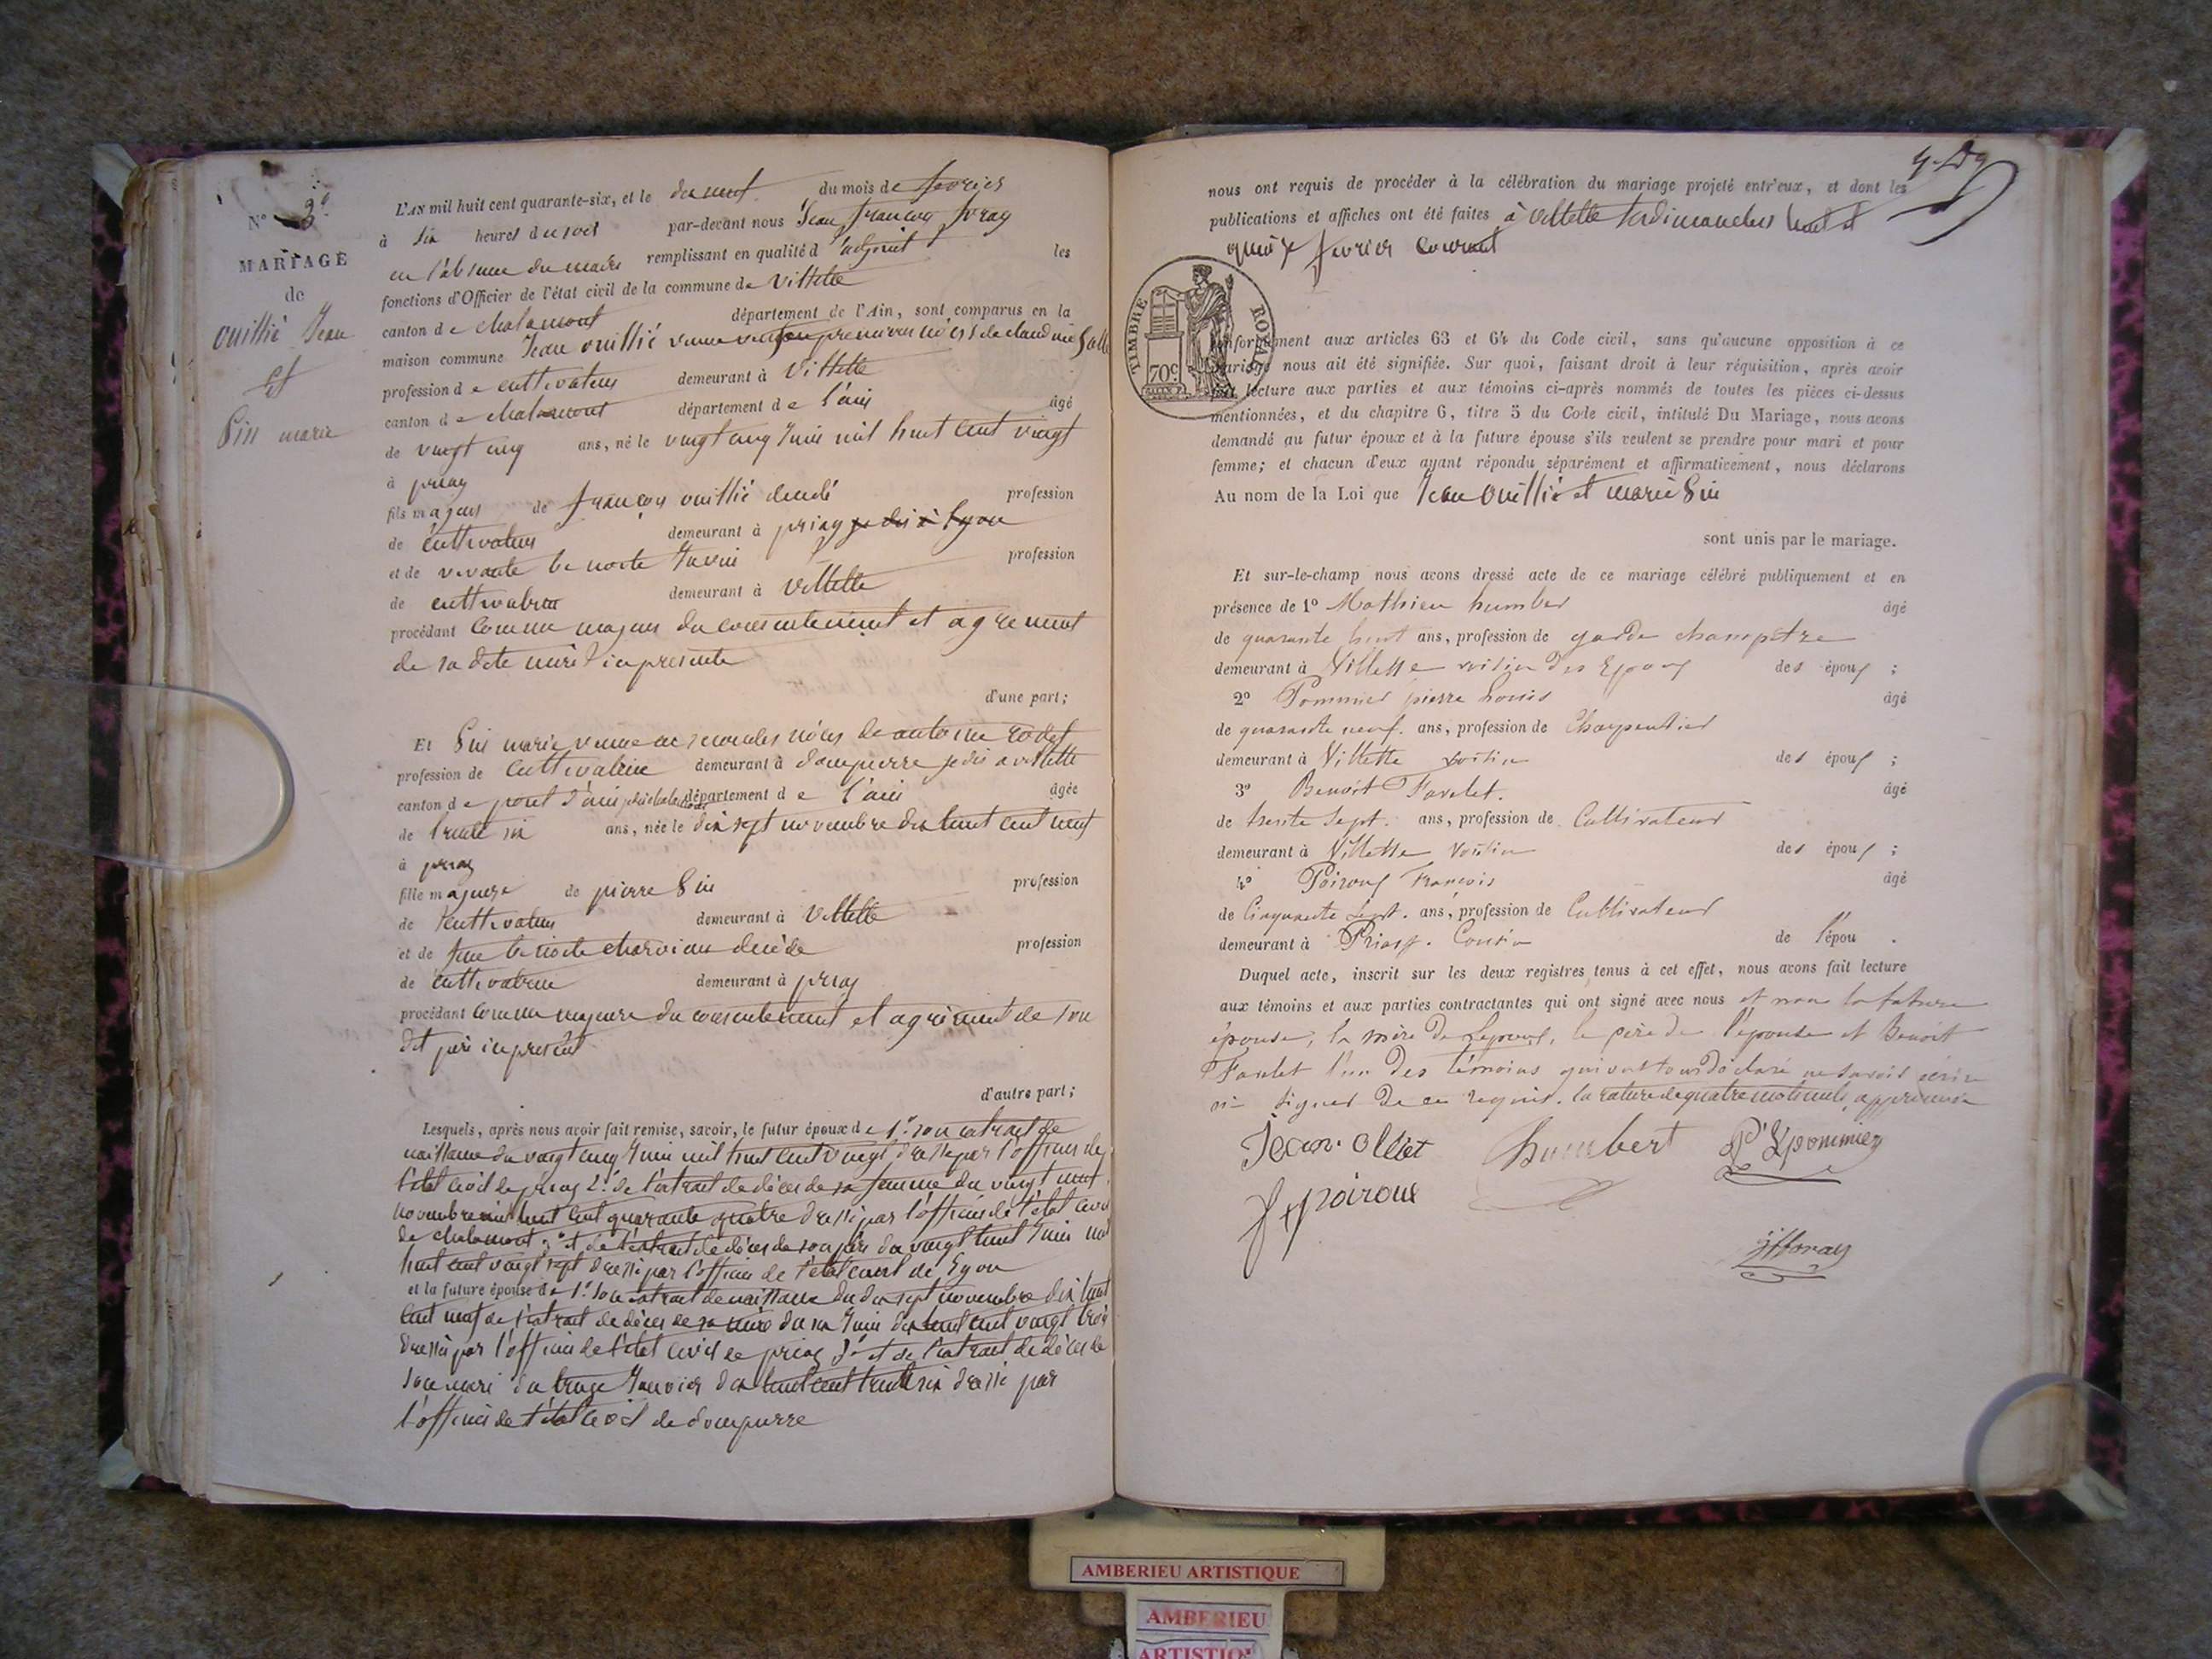 N° 3e
MARIAGE
de
ouillié Jean
et
Sin marie
L'AN mil huit cent quarante-six, et le dix neuf du mois de fevrier
à six heures du soir par-devant nous Jean françois fvray
en l'absence du maire remplissant en qualité d'adjoint les
fonctions d'Officier de l'état civil de la commune de Villette
canton de chalamont département de l'Ain, sont comparus en la
maison commune Jean ouillié premiere noces de claudine
profession de cultivateur demeurant à Villette
canton de chalamont département de l'ain âgé
de vingt cinq ans, né le vingt cinq Juin mil huit cent vingt
à priay
fils majeur de françois ouillié décédé profession
de cultivateur demeurant à priay je dis à Lyon
et de vivante benoite profession
de cultivatrice demeurant à Villette
procédant comme majeur du consentement et agrement
de sa dite mère ici presente
d'une part;
Et Sin marie veuve en secondes noces de antoine rodet
profession de cultivatrice demeurant à dompierre je dis a villette
canton de pont d'ain département de l'ain âgée
de trente six ans, née le dix sept novembre dix huit cent neuf
à priay
fille majeure de pierre Sin profession
de cultivateur demeurant à Villette
et de feue benoite décédée profession
de cultivatrice demeurant à priay
procédant comme majeure du consentement et agrément de son
dit père ici présent
d'autre part;
Lesquels, après nous avoir fait remise, savoir, le futur époux de 1° son extrait de
naissance du vingt cinq Juin mil huit cent vingt dressé par l'officier de
l'état civil de priay 2° de l'extrait de décès de sa femme du vingt neuf
novembre mil huit cent quarante quatre dressé par l'officier de l'état civil
de chalamont 3° et de l'extrait de décès de son père du vingt huit Juin mil
huit cent vingt sept dressé par l'officier de l'état civil de Lyon
et la future épouse de 1° son extrait de naissance du dix sept novembre dix huit
cent neuf de l'extrait de décès de sa mère du six Juin dix huit cent vingt trois
dressé par l'officier de l'état civil de priay 3° et de l'extrait de décès de
son mari du treize Janvier dix huit cent trente six dressé par
l'officier de l'état civil de dompierre
nous ont requis de procéder à la célébration du mariage projeté entr'eux, et dont les
publications et affiches ont été faites à villette les dimanches huit et
quinze fevrier courant
TIMBRE ROYAL
70c
conformément aux articles 63 et 64 du Code civil, sans qu'aucune opposition à ce
mariage nous ait été signifiée. Sur quoi, faisant droit à leur réquisition, après avoir
fait lecture aux parties et aux témoins ci-après nommés de toutes les pièces ci-dessus
mentionnées, et du chapitre 6, titre 5 du Code civil, intitulé Du Mariage, nous avons
demandé au futur époux et à la future épouse s'ils veulent se prendre pour mari et pour
femme; et chacun d'eux ayant répondu séparément et affirmativement, nous déclarons
Au nom de la Loi que Jean Ouillié et marie Sin
sont unis par le mariage.
Et sur-le-champ nous avons dressé acte de ce mariage célébré publiquement et en
présence de 1° Mathieu humber âgé
de quarante huit ans, profession de garde champêtre
demeurant à Villette voisin des Epoux des époux ;
2° Pommier pierre Louis âgé
de quarante neuf. ans, profession de Charpentier
demeurant à Villette voisin des époux ;
3° Benoit Favelet. âgé
de trente Sept. ans, profession de Cultivateur
demeurant à Villette Voisin des époux ;
4° Poiroux François âgé
de Cinquante Sept. ans, profession de Cultivateur
demeurant à Priay. Cousin de l'épou .
Duquel acte, inscrit sur les deux registres tenus à cet effet, nous avons fait lecture
aux témoins et aux parties contractantes qui ont signé avec nous et non la future
épouse, la mère de Lepoux, le père de l'épouse et Benoit
Favelet l'un des témoins qui ont tous déclaré ne Savoir écrire
ni Signer de ce requis. la rature de quatre mots nuls approuvée
Jean Olliet humbert P Lpommier
f poiroux
jffvray
AMBERIEU ARTISTIQUE
AMBERIEU
ARTISTIQ